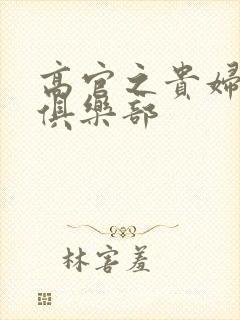 高官之貴婦
俱樂部
林害羞